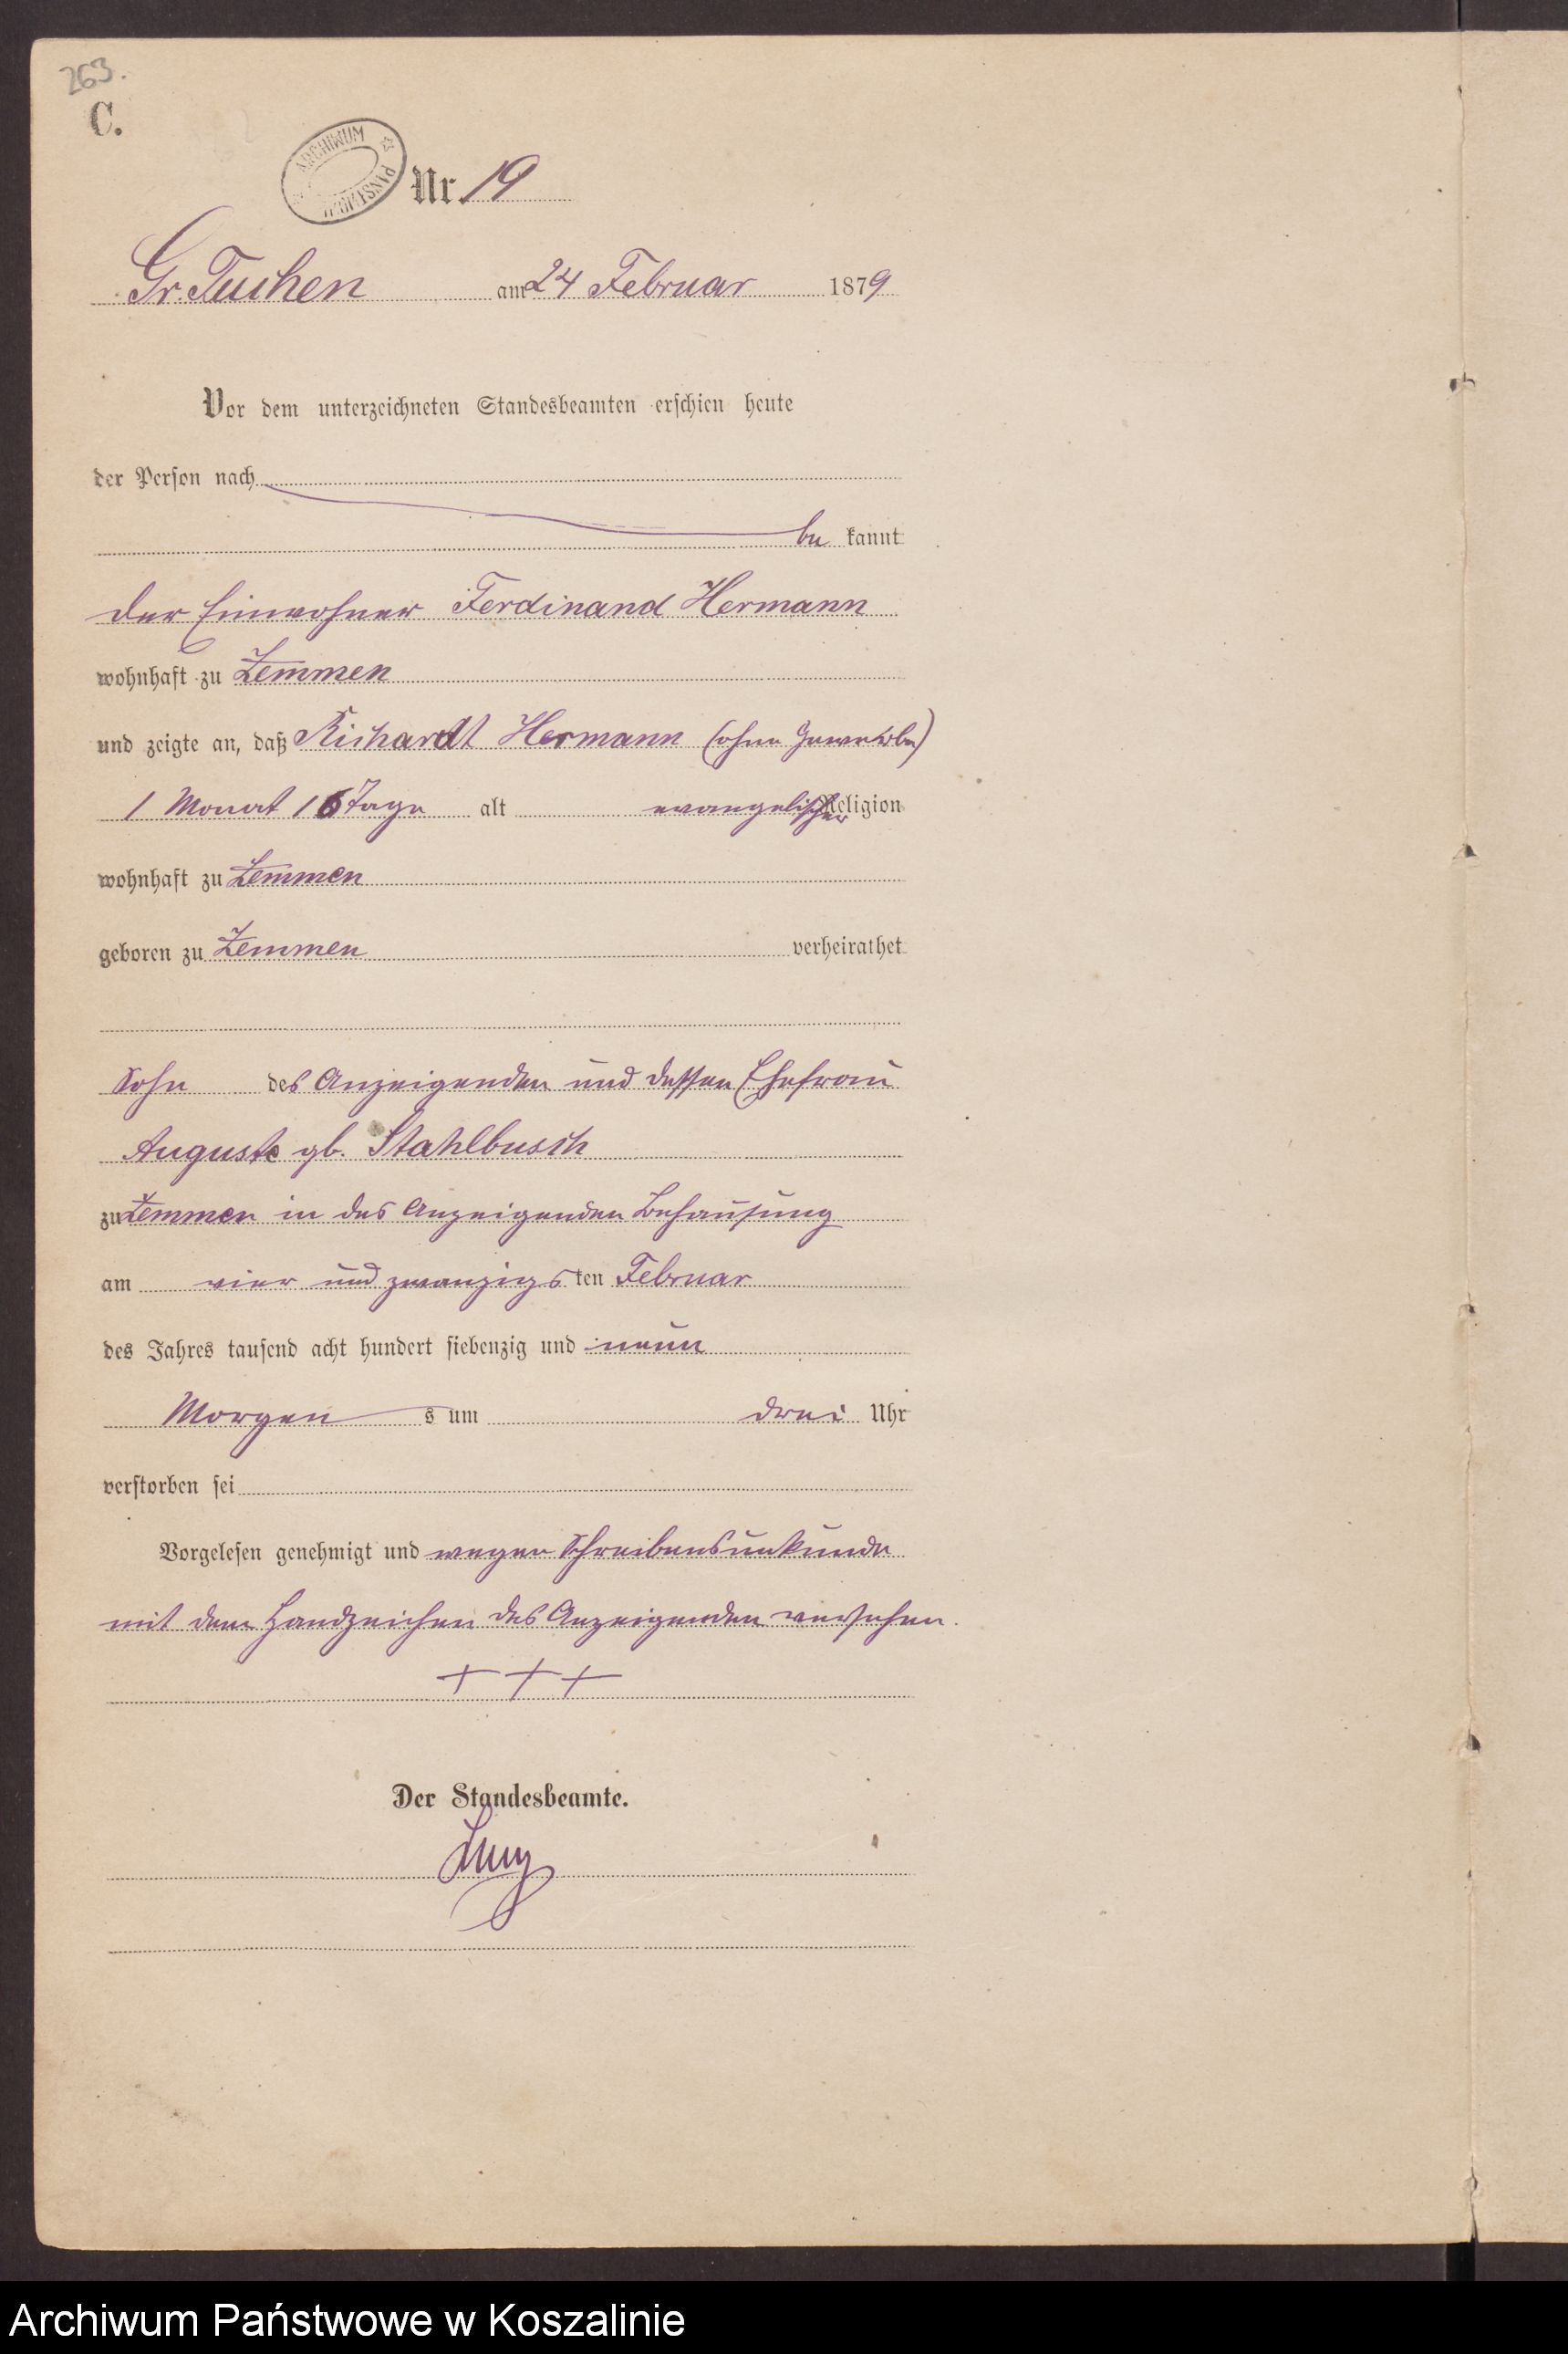 263.
C.
ARCHIWUM
Nr. 19
Gr. Tuchen am 24 Februar 1879
Vor dem unterzeichneten Standesbeamten erschien heute
der Person nach
be kannt
der Einwohner Ferdinand Hermann
wohnhaft zu Zemmen
und zeigte an, daß Richardt Hermann (ohne Gewerbe)
1 Monat 16 Tage alt evangelischer Religion
wohnhaft zu Zemmen
geboren zu Zemmen verheirathet
Sohn des Anzeigenden und dessen Ehefrau
Auguste gb. Stahlbusch
zu Zemmen in des Anzeigenden Behausung
am vier und zwanzigs ten Februar
des Jahres tausend acht hundert siebenzig und neun
Morgen s um drei Uhr
verstorben sei
Vorgelesen genehmigt und wegen Schreibensunkunde
mit dem Handzeichen des Anzeigenden versehen.
+ + +
Der Standesbeamte.
Archiwum Państwowe w Koszalinie